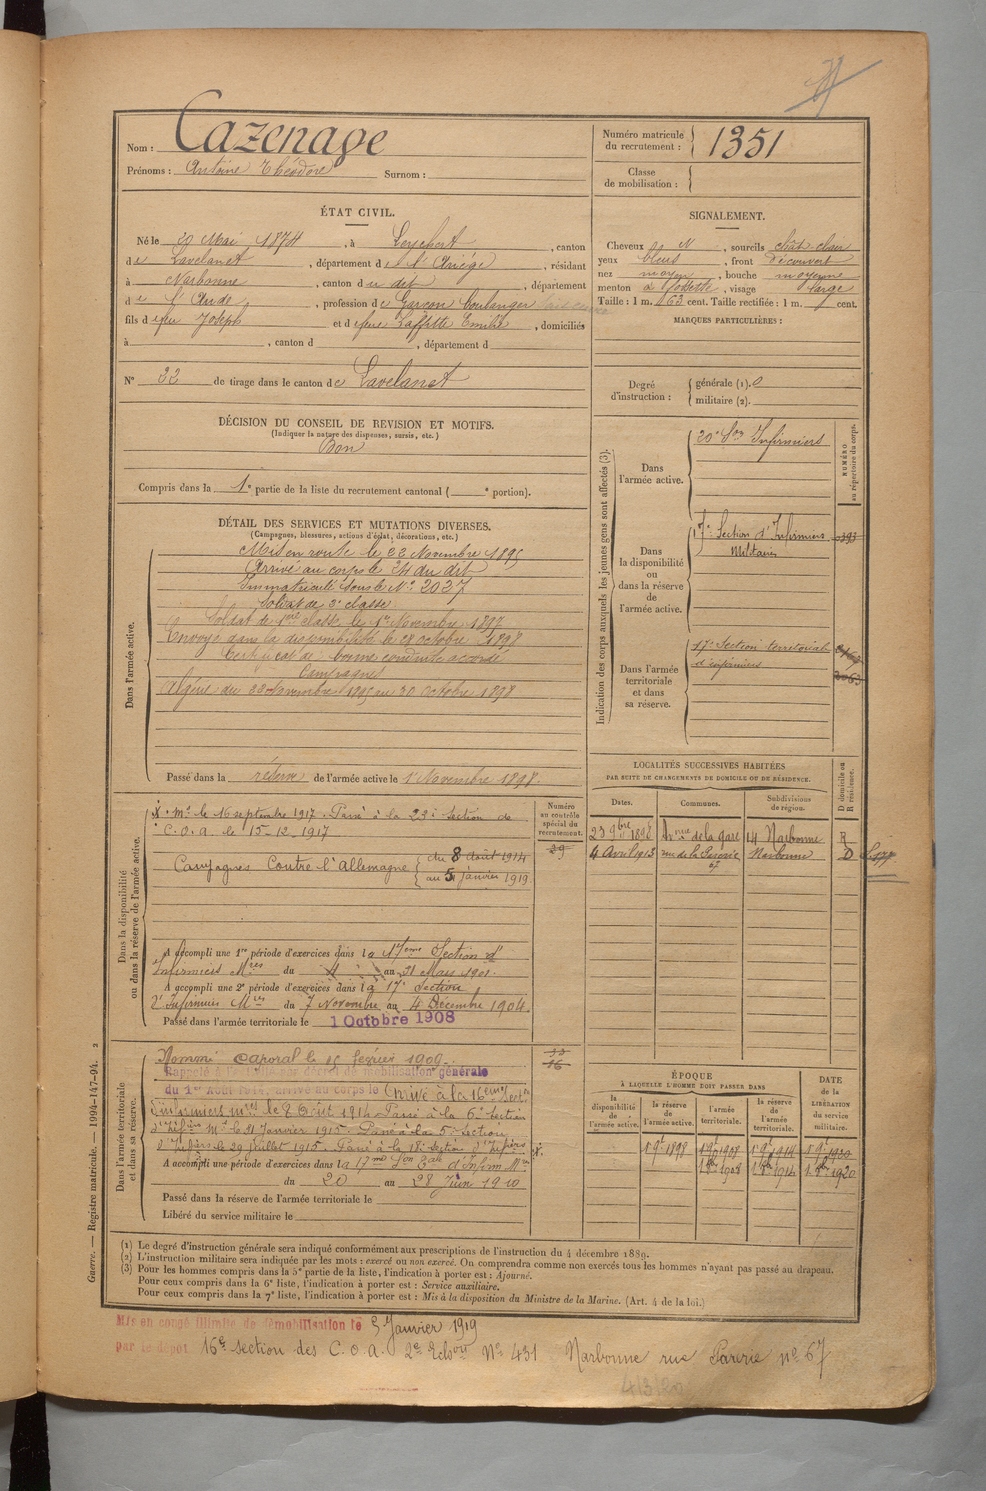 Nom : Cazenave
Prénoms : Antoine Théodore Surnom :
Numéro matricule du recrutement : 1351
Classe de mobilisation :
ÉTAT CIVIL.
Né le 20 Mai 1874, à Leychert, canton
de Lavelanet, département de l'Ariége, résidant
à Narbonne, canton du dit, département
de l'Aude, profession de Garçon boulanger
fils de feu Joseph et de feue Laffitte Emilie, domiciliés
à , canton d , département d
N° 32 de tirage dans le canton de Lavelanet
SIGNALEMENT.
Cheveux N, sourcils chât. clair
yeux bleus, front découvert
nez moyen, bouche moyenne
menton à fossette, visage large
Taille : 1 m. 63 cent. Taille rectifiée : 1 m. cent.
MARQUES PARTICULIÈRES :
Degré d'instruction : générale (1). militaire (2).
DÉCISION DU CONSEIL DE REVISION ET MOTIFS.
(Indiquer la nature des dispenses, sursis, etc.)
Bon
Compris dans la 1e partie de la liste du recrutement cantonal ( e portion).
DÉTAIL DES SERVICES ET MUTATIONS DIVERSES.
(Campagnes, blessures, actions d'éclat, décorations, etc.)
Dans l'armée active.
Mis en route le 22 Novembre 1895
Arrivé au corps le 24 du dit
Immatriculé sous le N° 2027
Soldat de 2e classe
Soldat de 1ère classe le 1er Novembre 1897
Envoyé dans la disponibilité le 28 octobre 1898
Certificat de bonne conduite accordé
Campagne
Algérie du 22 Novembre 1895 au 30 Octobre 1898
Passé dans la réserve de l'armée active le 1er Novembre 1898.
Indication des corps auxquels les jeunes gens sont affectés (3).
NUMÉRO au répertoire du corps.
Dans l'armée active.
20e Son Infirmiers
Dans la disponibilité ou dans la réserve de l'armée active.
17e Section d'Infirmiers
Militaires
Dans l'armée territoriale et dans sa réserve.
17e Section territoriale
d'infirmiers
LOCALITÉS SUCCESSIVES HABITÉES
PAR SUITE DE CHANGEMENTS DE DOMICILE OU DE RÉSIDENCE.
Dates. Communes. Subdivisions de région. D domicile ou R résidence.
23 9bre 1898 Avnue de la gare 14 Narbonne R
4 Avril 1913 rue de la Parerie 67 Narbonne D
Dans la disponibilité ou dans la réserve de l'armée active.
Numéro au contrôle spécial du recrutement.
Mre le 16 septembre 1917. Passé à la 22e Section de
C.O.A. le 15-12-1917
29
Campagnes Contre l'Allemagne du 8 août 1914
au 5 janvier 1919
A accompli une 1re période d'exercices dans la 17ème Section d'
Infirmiers Mres du 4 au 31 Mars 1901.
A accompli une 2e période d'exercices dans la 17e Section
d'Infirmiers Mres du 7 Novembre au 4 Décembre 1904.
Passé dans l'armée territoriale le 1 Octobre 1908
Dans l'armée territoriale et dans sa réserve.
Nommé Caporal le 25 février 1909.
Rappelé à l'activité par décret de mobilisation générale
du 1er Août 1914, arrivé au corps le Arrivé à la 16ème Secton
d'infirmiers mres le 8 Août 1914. Passé à la 6e Section
d'Infirs Mres le 21 Janvier 1915. Passé à la 5e Section
d'Infirs le 29 Juillet 1915. Passé à la 18e section d'Infiers
A accompli une période d'exercices dans la 17me Son d'Infirm Mres
du 20 au 28 Juin 1910
Passé dans la réserve de l'armée territoriale le
Libéré du service militaire le
ÉPOQUE
À LAQUELLE L'HOMME DOIT PASSER DANS
la disponibilité de l'armée active. la réserve de l'armée active. l'armée territoriale. la réserve de l'armée territoriale.
DATE de la LIBÉRATION du service militaire.
1 9e 1898 1 9e 1908 1 9e 1914 1 9e 1920
1 8e 1908 1 8e 1914 1 8e 1920
(1) Le degré d'instruction générale sera indiqué conformément aux prescriptions de l'instruction du 4 décembre 1889.
(2) L'instruction militaire sera indiquée par les mots : exercé ou non exercé. On comprendra comme non exercés tous les hommes n'ayant pas passé au drapeau.
(3) Pour les hommes compris dans la 5e partie de la liste, l'indication à porter est : Ajourné.
Pour ceux compris dans la 6e liste, l'indication à porter est : Service auxiliaire.
Pour ceux compris dans la 7e liste, l'indication à porter est : Mis à la disposition du Ministre de la Marine. (Art. 4 de la loi.)
Guerre. — Registre matricule. — 1994-147-94. 2
Mis en congé illimité de démobilisation le 5 Janvier 1919
par le dépôt 16e section des C.O.A. 2e Echon No 431 Narbonne rue Parerie no 67
4/3/20